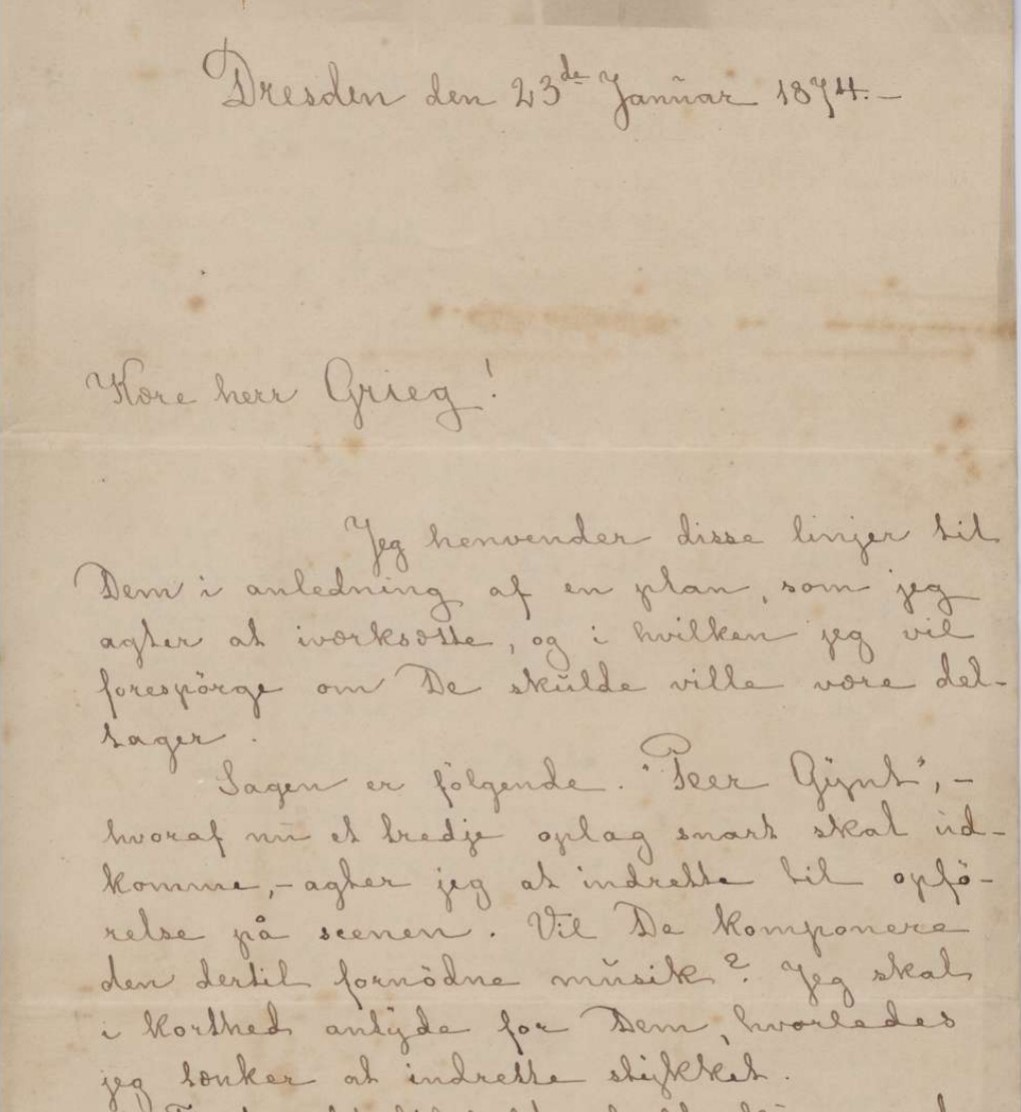 Dresden den 23de Januar 1874.–
Kære herr Grieg!
Jeg henvender disse linjer til
Dem i anledning af en plan, som jeg
agter at iværksætte, og i hvilken jeg vil
forespörge om De skulde ville være del-
tager.
Sagen er fölgende. "Peer Gynt", –
hvoraf nu et tredje oplag snart skal ud-
komme, – agter jeg at indrette til opfö-
relse på scenen. Vil De komponere
den dertil fornödne musik? Jeg skal
i korthed antyde for Dem, hvorledes
jeg tænker at indrette stykket.